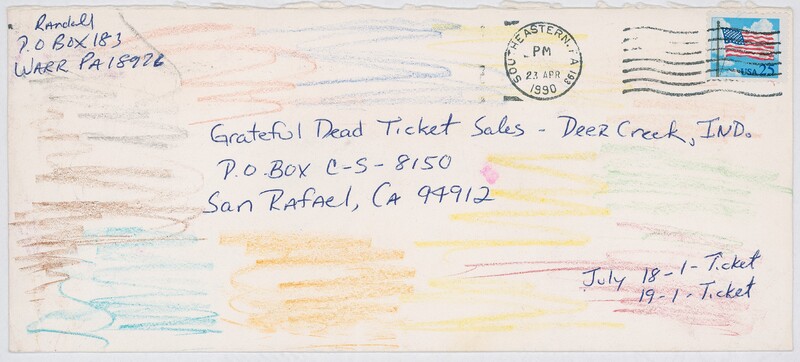 Randall
P.O BOX 183
WARR PA 18926
SOUTHEASTERN, PA 193
PM
23 APR
1990
USA 25
Grateful Dead Ticket Sales - Deer Creek, IND.
P.O. BOX C-S-8150
San RAFAEL, CA 94912
July 18-1-Ticket
19-1-Ticket